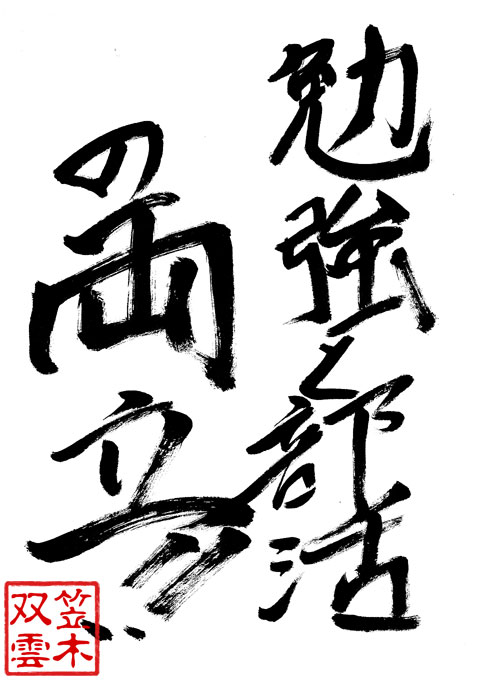 勉強と部活
の両立!!
笠木
双雲